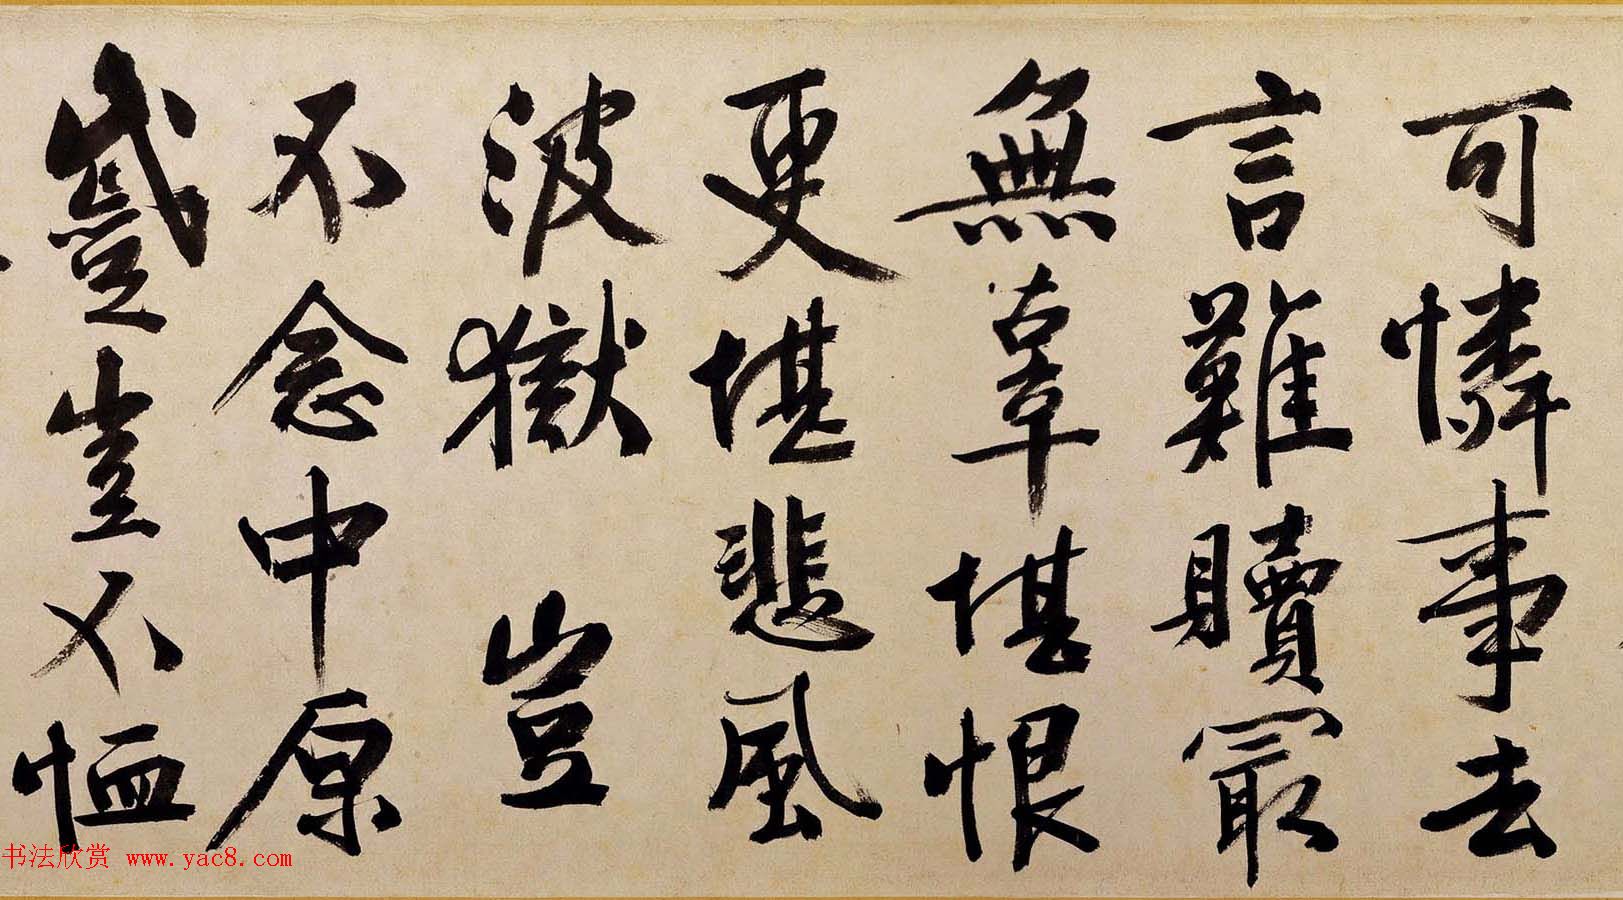 可憐事去
言難贖最
無辜堪恨
更堪悲風
波獄 豈
不念中原
蹙豈不恤
书法欣赏 www.yac8.com